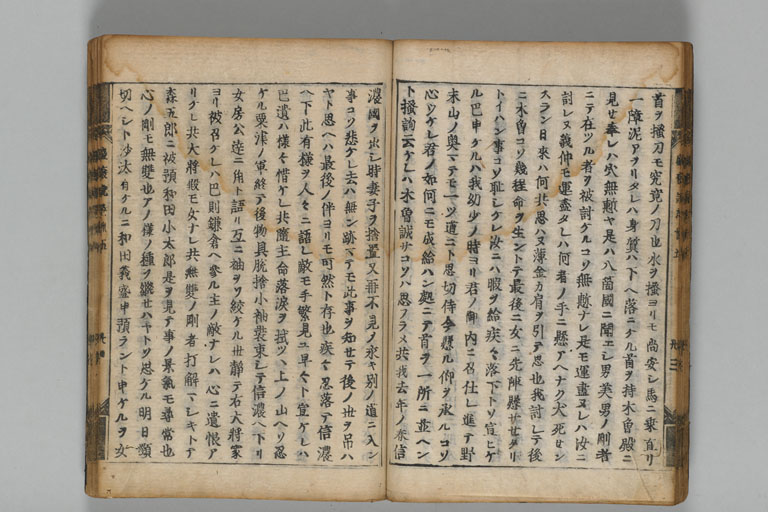 首ヲ搔刀モ究竟ノ刀也水ヲ搔ヨリモ尚安シ馬ニ乗直リ
一障泥アヲリタレハ身質ハ下ヘ落ニケル首ヲ持木曽殿ニ
見セ奉レハ穴無慙ヤ是ハ八箇國ニ聞エシ男美男ノ剛者
ニテ在ツル者ヲ被討ケルコソ無慙ナレ是モ運盡ヌレハ汝ニ
討レヌ義仲モ運盡タレハ何者ノ手ニ懸アヘナク犬死セン
スラン日來ハ何共思ハヌ薄金カ肩ヲ引テ思也我討レテ後
ニ木曽コソ幾程命ヲ生ントテ最後ニ女ニ先陣懸サセタリ
トイハン事コソ恥シケレ汝ニハ暇ヲ給疾々落下トソ宣ヒケ
ル巴申ケルハ我幼少ノ時ヨリ君ノ御内ニ召仕レ進テ野
末山ノ奥マテモ一ツ道ニト思切侍今懸ル仰ヲ承ルコソ
心ウケレ君ノ如何ニモ成給ハン處ニテ首ヲ一所ニ並ヘン
ト搔詢云ケレハ木曽誠サコソハ思フラメ共我去年ノ春信
濃國ヲ出シ時妻子ヲ捨置又再不見シテ永キ別ノ道ニ入ン
事コソ悲ケレ去ハ無ン跡マテモ此事ヲ知セテ後ノ世ヲ吊ハ
ヤト思ヘハ最後ノ伴ヨリモ可然ト存也疾々忍落テ信濃
ヘ下此有様ヲ人々ニ語レ敵モ手繁見ユ早々ト宣ケレハ
巴遺ハ様々惜ケレ共隨主命落淚ヲ拭ツヽ上ノ山ヘソ忍
ケル粟津ノ軍終テ後物具脱捨小袖装束シテ信濃ヘ下リ
女房公達ニ角ト語リ互ニ袖ヲソ絞ケル世静テ右大將家
ヨリ被召ケレハ巴則鎌倉ヘ參ル主ノ敵ナレハ心ニ遺恨ア
リケレ共大將殿モ女ナレ共無雙ノ剛者打解マシキトテ
森五郎ニ被預和田小太郎是ヲ見テ事ノ景氣モ尋常也
心ノ剛モ無雙也アノ様ノ種ヲ繼セハヤトソ思ケル明日頸
切ヘシト沙汰有ケルニ和田義盛申預ラント申ケルヲ女